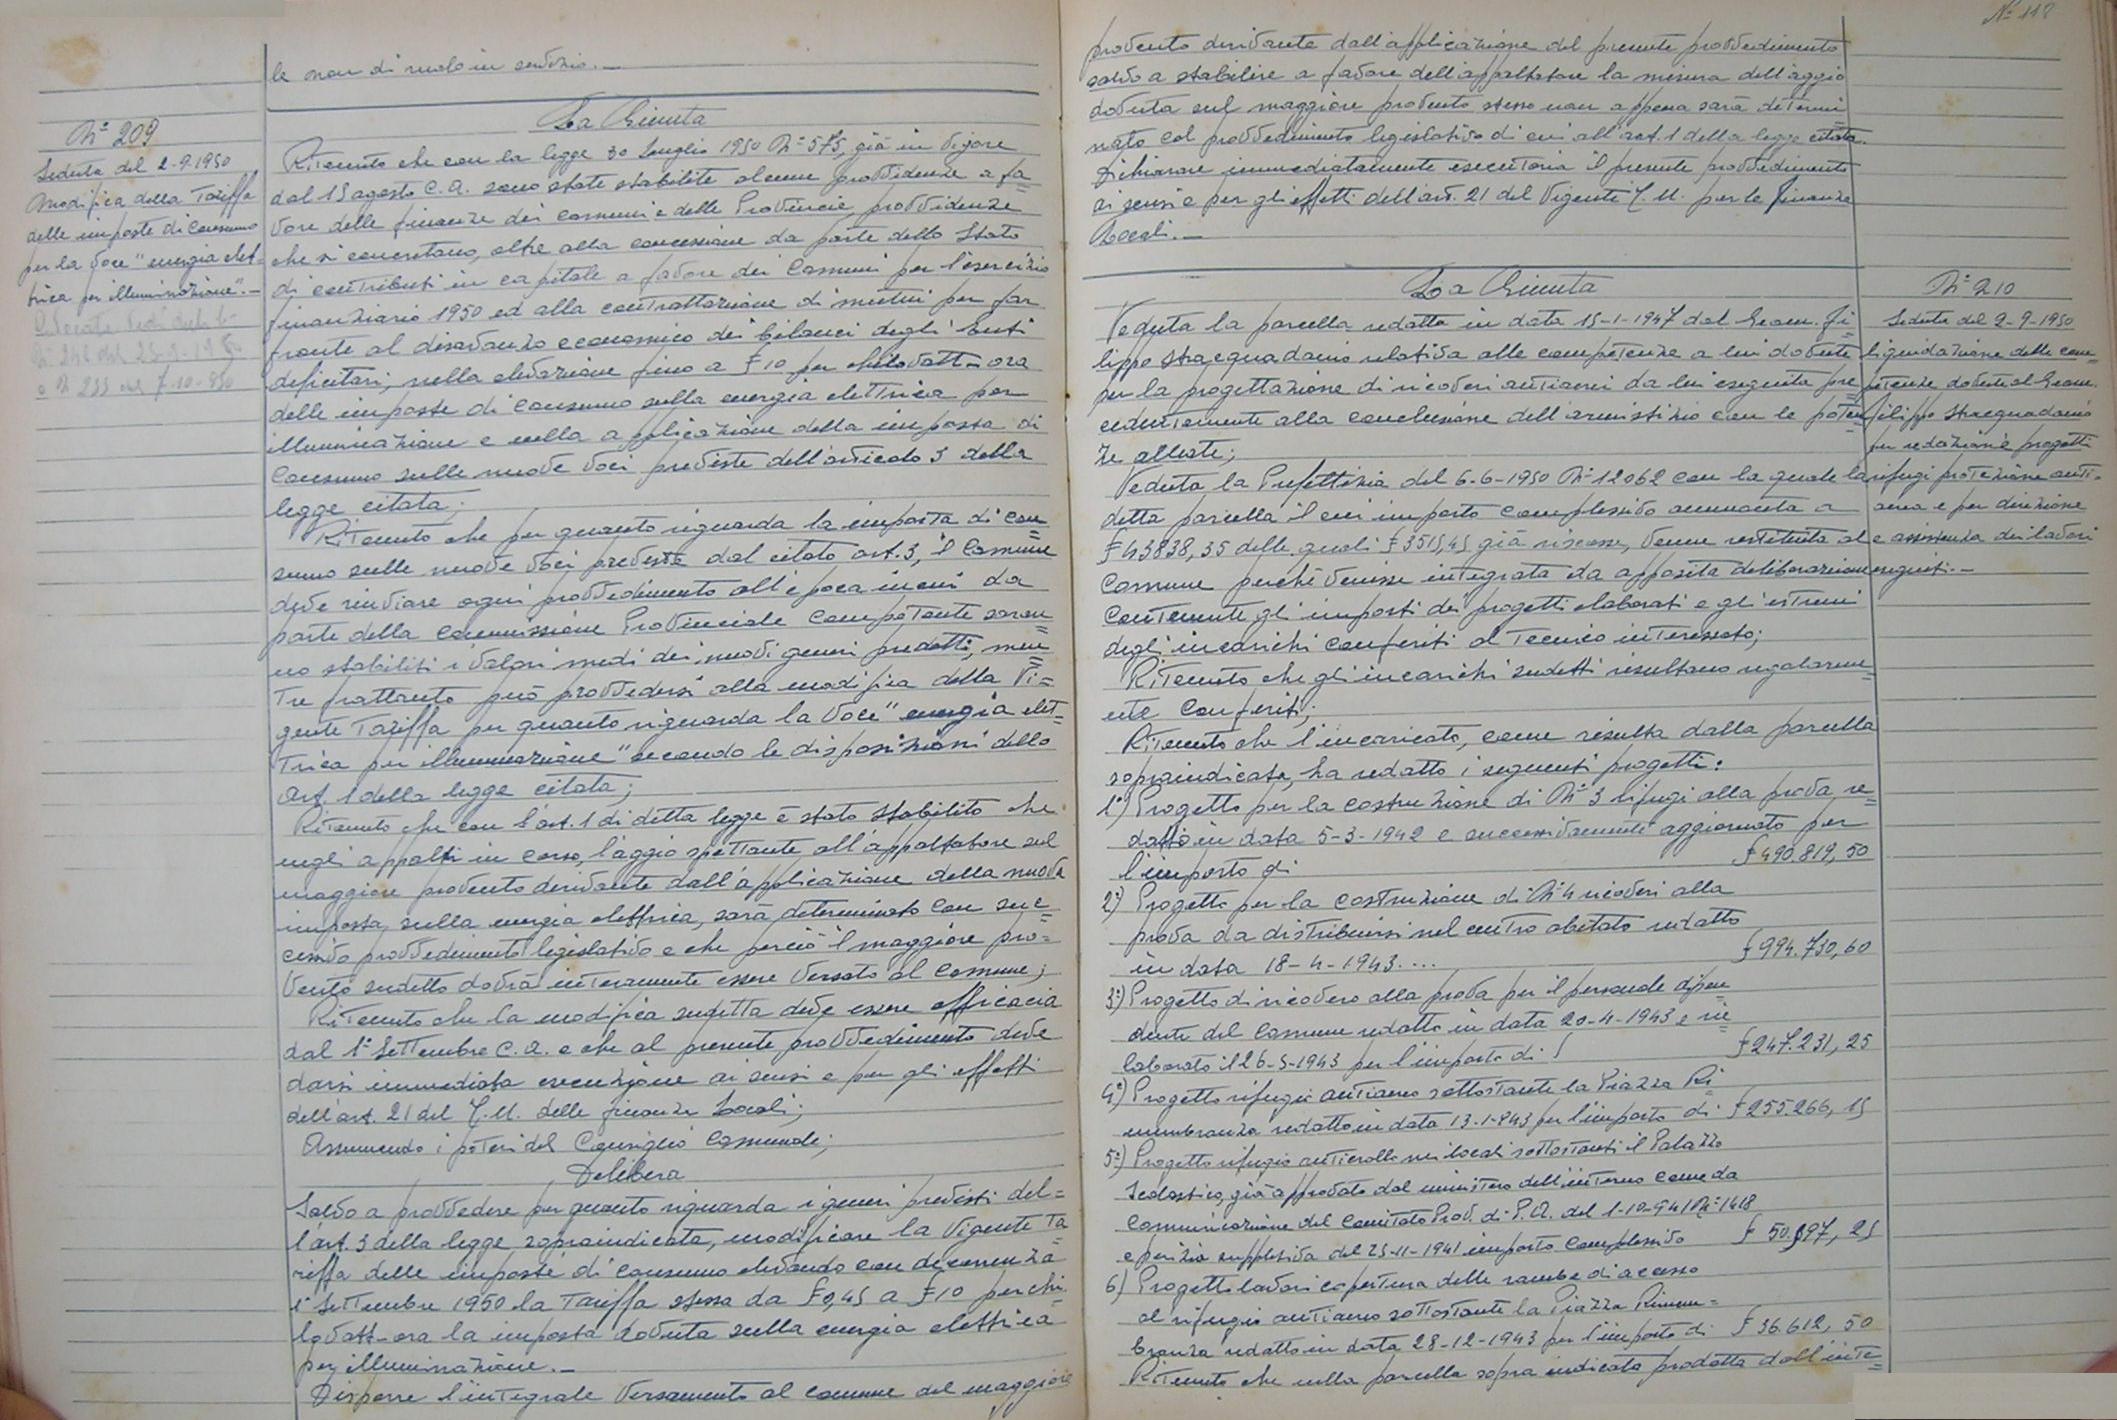 le non di ruolo in servizio.—
N° 209
Seduta del 2-9-1950
Modifica della Tariffa
delle imposte di consumo
per la voce "energia elet=
trica per illuminazione".—
N° 242 del 25-9-1950
e N 255 del 7-10-950
La Giunta
Ritenuto che con la legge 30 Luglio 1950 N° 575, già in vigore
dal 15 agosto c.a. sono state stabilite alcune provvidenze a fa=
vore delle finanze dei comuni e delle Provincie, provvidenze
che si concretano, oltre alla concessione da parte dello Stato
di contributi in capitale a favore dei Comuni per l'esercizio
finanziario 1950 ed alla contrattazione di mutui per far
fronte al disavanzo economico dei bilanci degli Enti
deficitari, nella elevazione fino a £ 10 per chilovatt-ora
delle imposte di consumo sulla energia elettrica per
illuminazione e nella applicazione della imposta di
consumo sulle nuove voci previste dell'articolo 3 della
legge citata;
Ritenuto che per quanto riguarda la imposta di con=
sumo sulle nuove voci previste dal citato art. 3, il Comune
deve rinviare ogni provvedimento all'epoca in cui da
parte della commissione Provinciale competente saran=
no stabiliti i valori medi dei nuovi generi predetti, men=
tre frattanto può provvedersi alla modifica della Vi=
gente Tariffa per quanto riguarda la voce "energia elet=
trica per illuminazione" secondo le disposizioni dello
art. 1 della legge citata;
Ritenuto che con l'art. 1 di detta legge è stato stabilito che
negli appalti in corso, l'aggio spettante all'appaltatore sul
maggiore provento derivante dall'applicazione della nuova
imposta, sulla energia elettrica, sarà determinato con suc=
cessivo provvedimento legislativo e che perciò il maggiore pro=
vento sudetto dovrà interamente essere versato al comune;
Ritenuto che la modifica sudetta deve essere efficacia
dal 1° Settembre c.a. e che al presente provvedimento deve
darsi immediata esecuzione ai sensi e per gli effetti
dell'art. 21 del T.U. delle finanze Locali;
Assumendo i poteri del Consiglio Comunale;
Delibera
Salvo a provvedere per quanto riguarda i generi previsti del=
l'art. 3 della legge sopraindicata, modificare la Vigente Ta=
riffa delle imposte di consumo elevando con decorrenza
1° Settembre 1950 la Tariffa stessa da £ 0,45 a £ 10 per chi=
lovatt-ora la imposta dovuta sulla energia elettrica
per illuminazione.—
Disporre l'integrale versamento al comune del maggiore
N° 118
provento derivante dall'applicazione del presente provvedimento
salvo a stabilire a favore dell'appaltatore la misura dell'aggio
dovuta sul maggiore provento stesso non appena sarà determi=
nato col provvedimento legislativo di cui all'art. 1 della legge citata.
Dichiarare immediatamente esecutorio il presente provvedimento
ai sensi e per gli effetti dell'art. 21 del Vigente T.U. per le Finanze
Locali.—
La Giunta
N° 210
Seduta del 2-9-1950
liquidazione delle com=
petenze dovute al Geom.
Filippo Stracquadanio
per redazione progetti
rifugi protezione anti=
aerea e per direzione
e assistenza dei lavori
eseguiti.—
Veduta la parcella redatta in data 15-1-1947 dal Geom. Fi=
lippo Stracquadanio relativa alle competenze a lui dovute
per la progettazione di ricoveri antiaerei da lui eseguita pre=
cedentemente alla conclusione dell'armistizio con le poten=
ze alleate;
Veduta la Prefettizia del 6-6-1950 N° 12062 con la quale la
detta parcella il cui importo complessivo ammonta a
£ 43838,35 delle quali £ 3515,45 già riscosse, venne restituita al
Comune perché venisse integrata da apposita deliberazione
contenente gli importi dei progetti elaborati e gli estremi
degli incarichi conferiti al Tecnico interessato;
Ritenuto che gli incarichi sudetti risultano regolarme=
nte conferiti;
Ritenuto che l'incaricato, come risulta dalla parcella
sopraindicata, ha redatto i seguenti progetti:
1°) Progetto per la costruzione di N° 3 rifugi alla prova, re=
datto in data 5-3-1942 e successivamente aggiornato per
l'importo di £ 490.819,50
2°) Progetto per la costruzione di N° 4 ricoveri alla
prova da distribuirsi nel centro abitato redatto
in data 18-4-1943.... £ 994.730,60
3°) Progetto di ricovero alla prova per il personale dipen=
dente del comune redatto in data 20-4-1943 e rie=
laborato il 26-5-1943 per l'importo di £ 247.231,25
4°) Progetto rifugio antiaereo sottostante la Piazza Ri=
membranza redatto in data 13-1-943 per l'importo di £ 255.266,15
5°) Progetto rifugio anticrollo nei locali sottostanti il Palazzo
Scolastico, già approvato dal ministero dell'interno come da
comunicazione del Comitato Prov. di P.A. del 1-10-941 N° 1418
e perizia suppletiva del 25-11-1941 importo complessivo £ 50.897,25
6) Progetti lavori copertura delle rambe di accesso
al rifugio antiaereo sottostante la Piazza Rimem=
branza redatto in data 28-12-1943 per l'importo di £ 36.612,50
Ritenuto che nella parcella sopra indicata prodotta dall'inte=